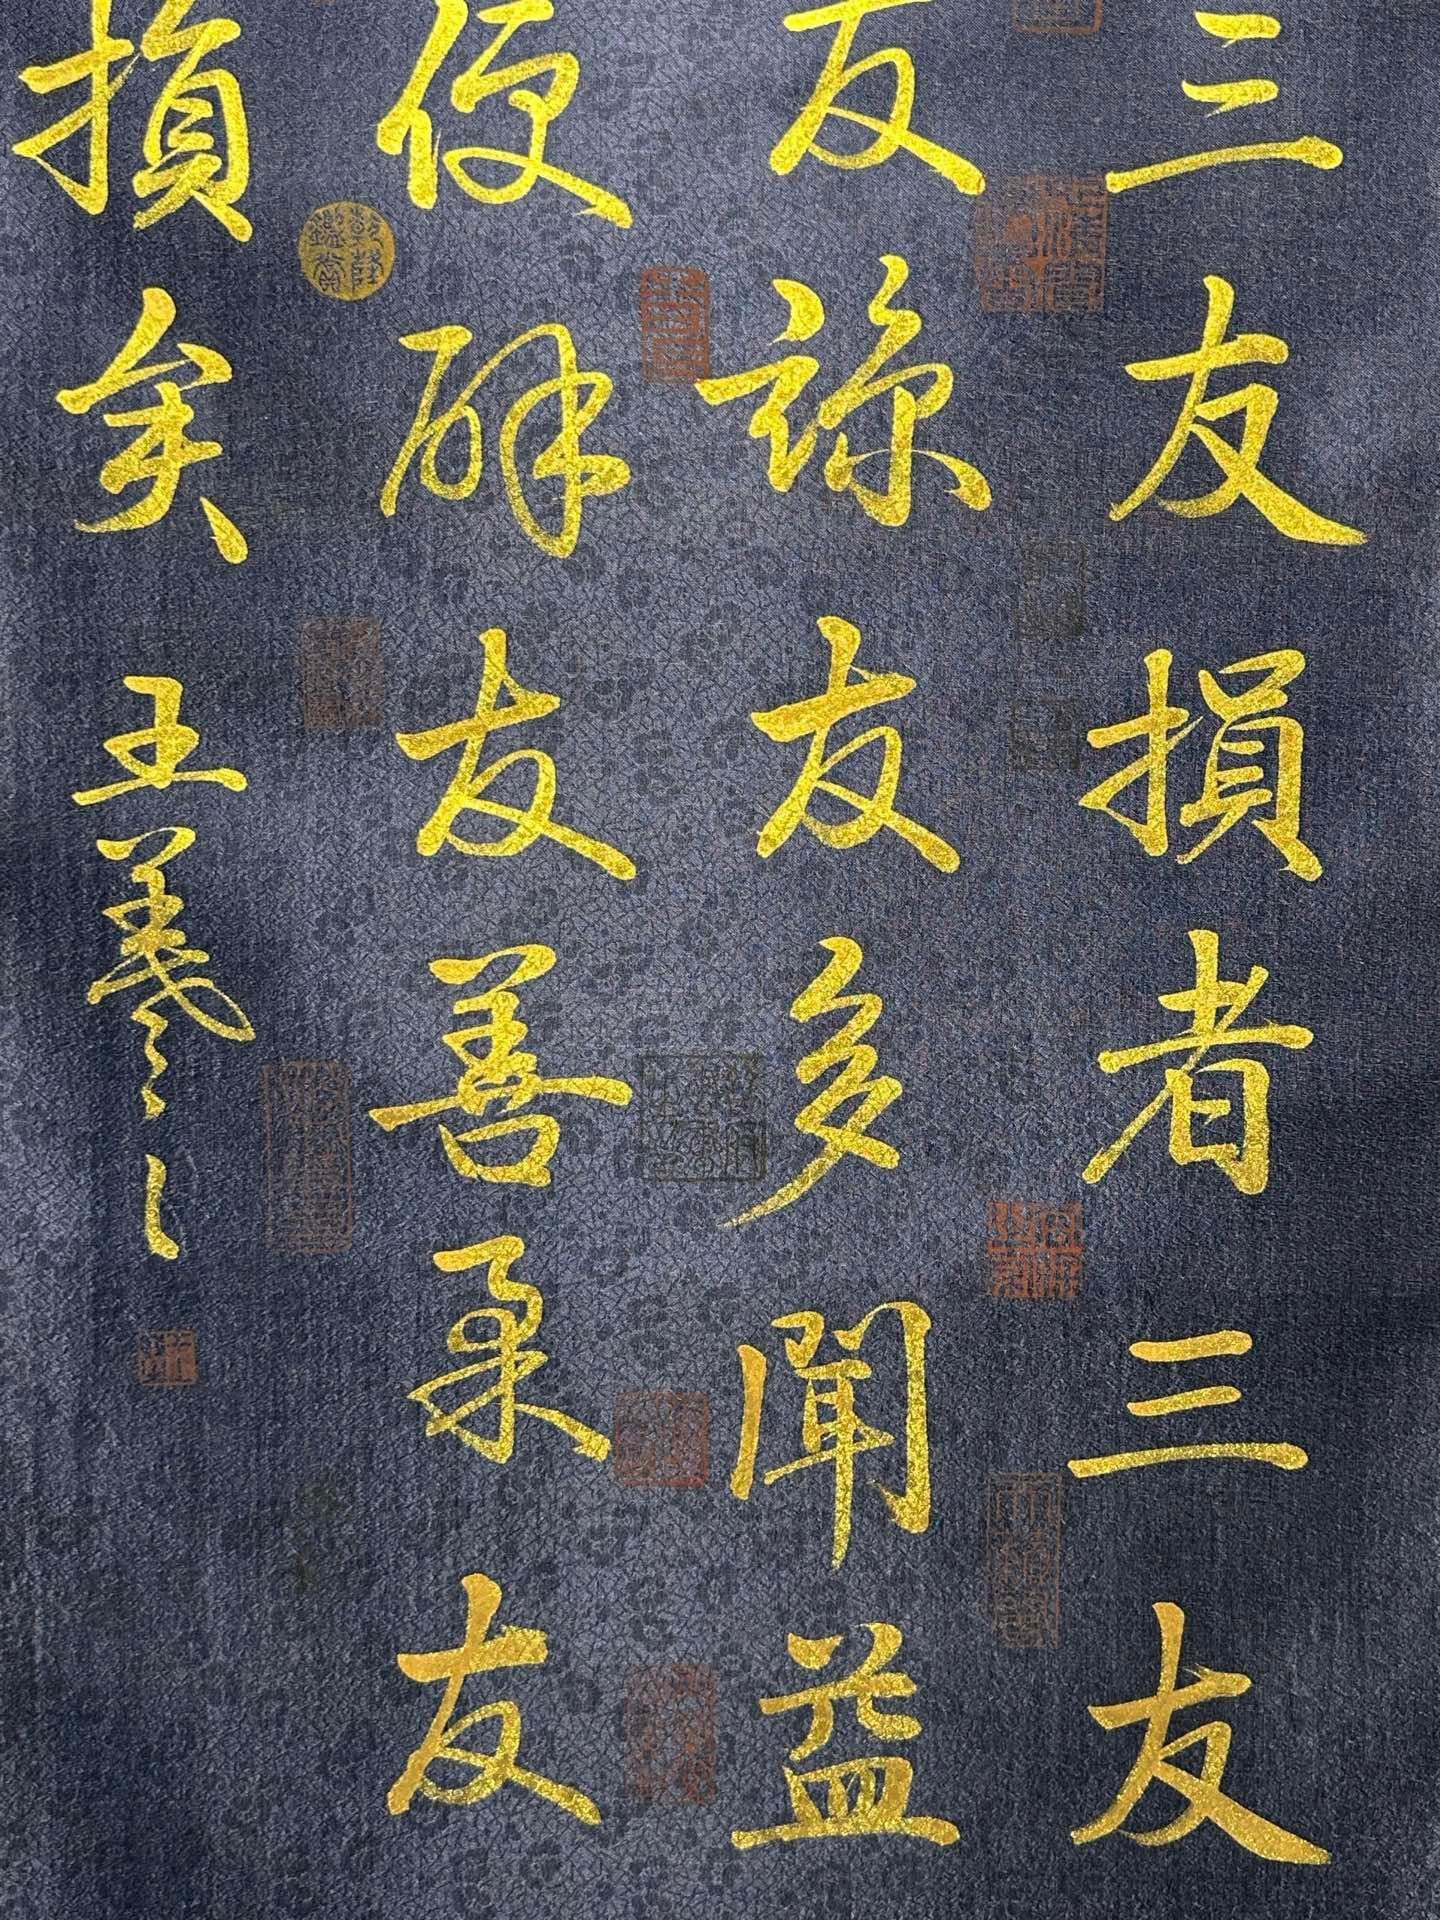 三友損者三友
友諒友多聞益
便辟友善柔友
損矣 王羲之